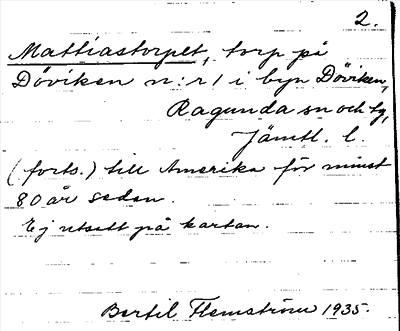 2.
Mattiastorpet, torp på
Döviken n:r 1 i byn Döviken,
Ragunda sn och tg,
Jämtl. l.
(forts.) till Amerika för minst
80 år sedan.
Ej utsatt på kartan.
Bertil Flemström 1935.